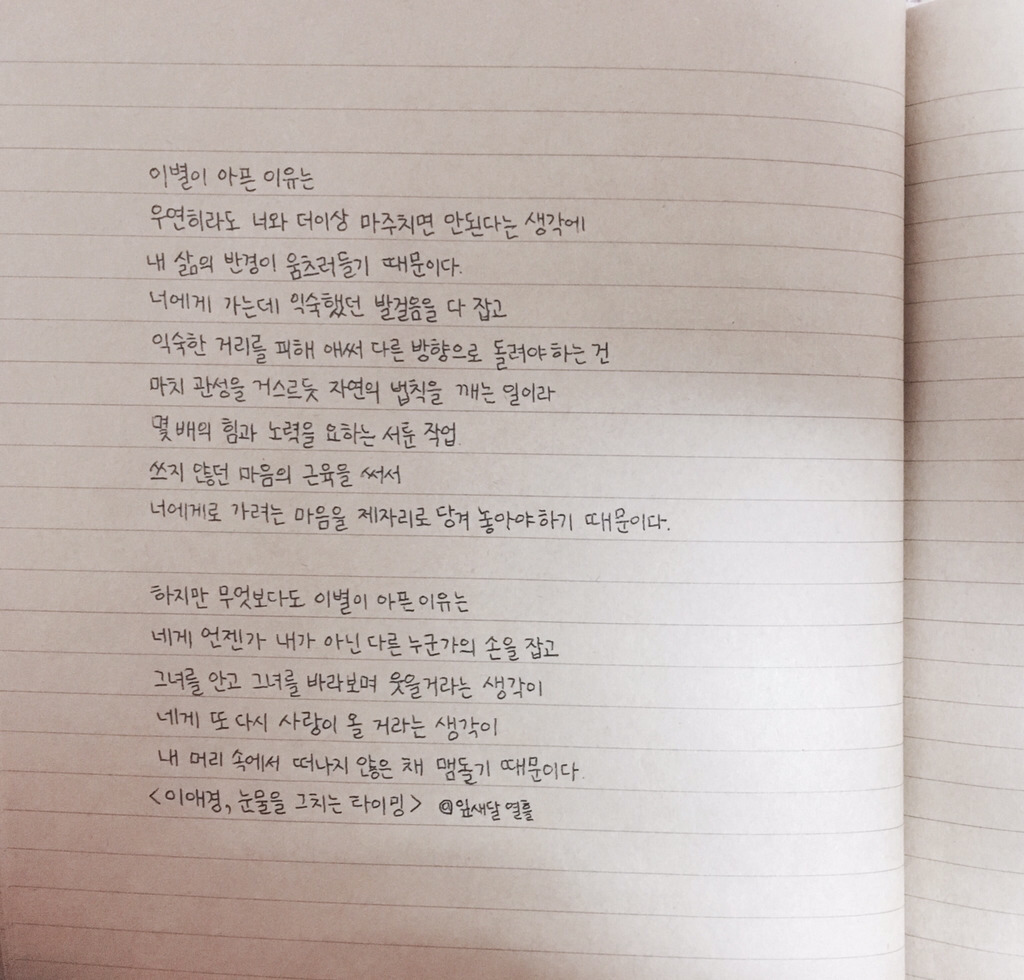 이별이 아픈 이유는
우연히라도 너와 더이상 마주치면 안된다는 생각에
내 삶의 반경이 움츠러들기 때문이다.
너에게 가는데 익숙했던 발걸음을 다 잡고
익숙한 거리를 피해 애써 다른 방향으로 돌려야 하는 건
마치 관성을 거스르듯 자연의 법칙을 깨는 일이라
몇 배의 힘과 노력을 요하는 서툰 작업.
쓰지 않던 마음의 근육을 써서
너에게로 가려는 마음을 제자리로 당겨 놓아야 하기 때문이다.
하지만 무엇보다도 이별이 아픈 이유는
네게 언젠가 내가 아닌 다른 누군가의 손을 잡고
그녀를 안고 그녀를 바라보며 웃을거라는 생각이
네게 또 다시 사랑이 올 거라는 생각이
내 머리 속에서 떠나지 않은 채 맴돌기 때문이다.
<이애경, 눈물을 그치는 타이밍> @잎새달 열흘